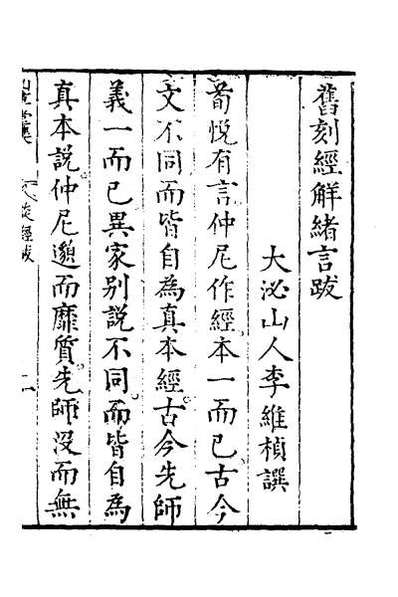 舊刻經解緒言跋
大泌山人李維楨譔
荀悅有言仲尼作經本一而已古今
文不同而皆自為真本經古今先師
義一而已異家别說不同而皆自為
真本說仲尼邈而靡質先師没而無
談經跋